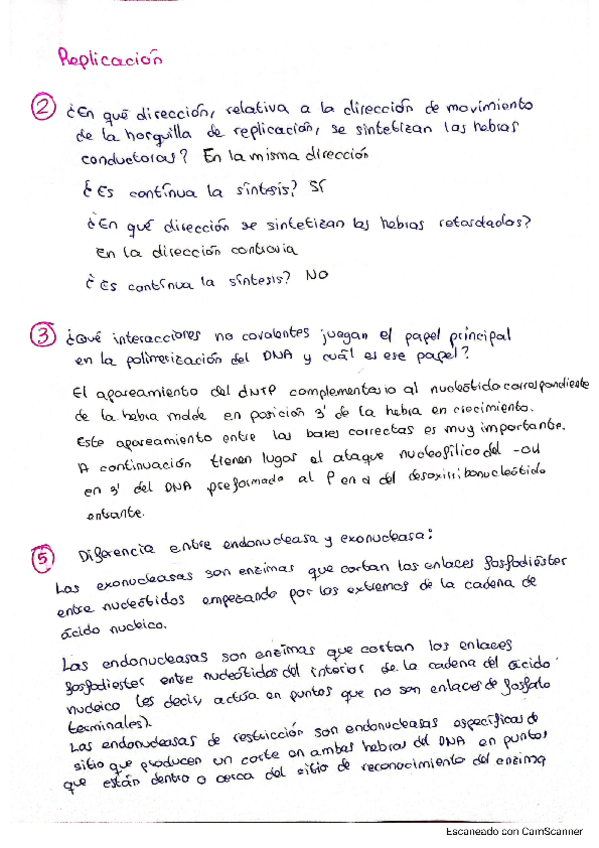 Replicación
② ¿En qué dirección, relativa a la dirección de movimiento
de la horquilla de replicación, se sintetizan las hebras
conductoras? En la misma dirección
¿Es contínua la síntesis? SÍ
¿En qué dirección se sintetizan las hebras retardadas?
En la dirección contraria
¿Es contínua la síntesis? No
③ ¿Qué interacciones no covalentes juegan el papel principal
en la polimerización del DNA y cuál es ese papel?
El apareamiento del dNTP complementario al nucleótido correspondiente
de la hebra molde en posición 3' de la hebra en crecimiento.
Este apareamiento entre las bases correctas es muy importante.
A continuación tienen lugar el ataque nucleofílico del -OH
en 3' del DNA preformado al P en α del desoxirribonucleótido
entrante.
⑤ Diferencia entre endonucleasa y exonucleasa:
Las exonucleasas son enzimas que cortan los enlaces fosfodiéster
entre nucleótidos empezando por los extremos de la cadena de
ácido nucleico.
Las endonucleasas son enzimas que cortan los enlaces
fosfodiester entre nucleótidos del interior de la cadena del ácido
nucleico (es decir, actúa en puntos que no son enlaces de fosfato
terminales).
Las endonucleasas de restricción son endonucleasas específicas de
sitio que producen un corte en ambas hebras del DNA en puntos
que están dentro o cerca del sitio de reconocimiento del enzima
Escaneado con CamScanner